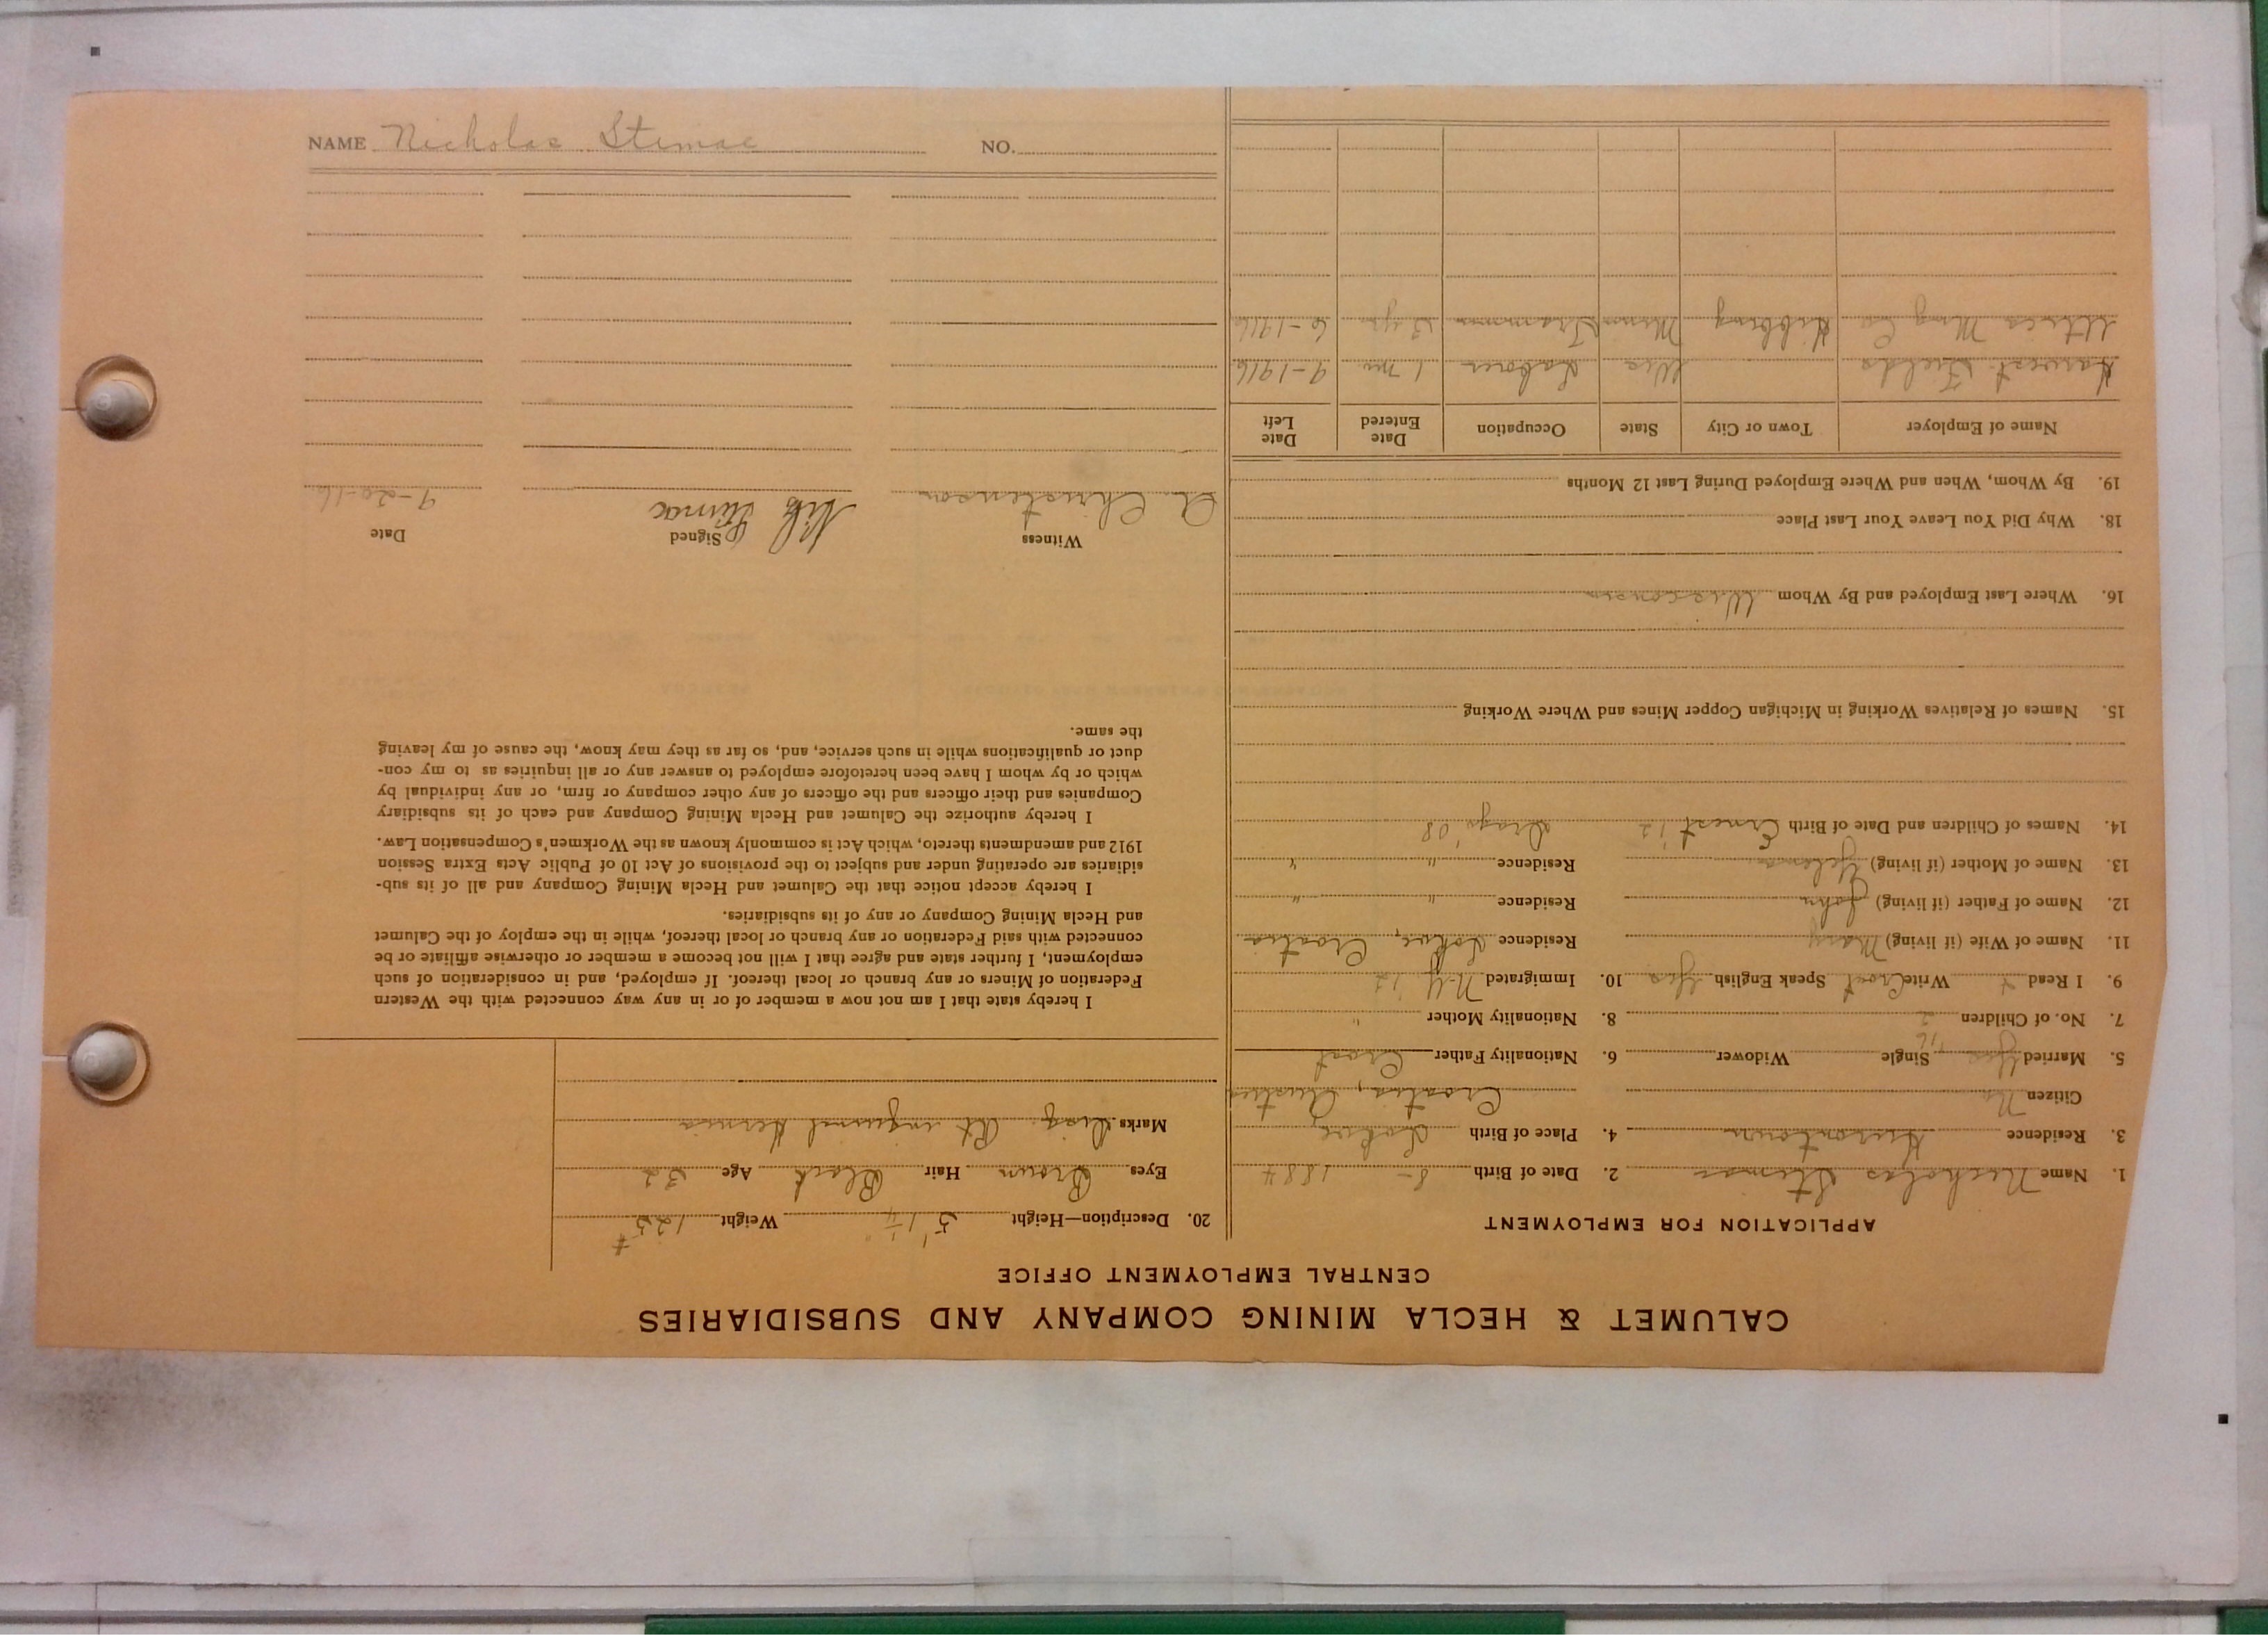 CALUMET & HECLA MINING COMPANY AND SUBSIDIARIES
CENTRAL EMPLOYMENT OFFICE
APPLICATION FOR EMPLOYMENT
1. Name Nicholas Stimac 2. Date of Birth 8- 1884
3. Residence Hurontown 4. Place of Birth Lokve,
Citizen No Croatia, Austria
5. Married Yes '16 Single Widower 6. Nationality Father Croat
7. No. of Children 2 8. Nationality Mother "
9. I Read + Write Croat Speak English Yes 10. Immigrated N-Y '12
11. Name of Wife (if living) Mary Residence Lokve, Croatia
12. Name of Father (if living) John Residence " "
13. Name of Mother (if living) Residence " "
14. Names of Children and Date of Birth Ernest '12 Drago '08
15. Names of Relatives Working in Michigan Copper Mines and Where Working
16. Where Last Employed and By Whom Wisconsin
18. Why Did You Leave Your Last Place
19. By Whom, When and Where Employed During Last 12 Months
Name of Employer Town or City State Occupation Date Entered Date Left
Harvest Fields Wis Labour 1 mo. 9-1916
Utica Mng Co Hibbing Minn Tramman 3 yr. 6-1916
20. Description—Height 5' 1 1/4" Weight 125 #
Eyes Brown Hair Black Age 32
Marks Diag. Rt inguinal Hernia
I hereby state that I am not now a member of or in any way connected with the Western
Federation of Miners or any branch or local thereof. If employed, and in consideration of such
employment, I further state and agree that I will not become a member or otherwise affiliate or be
connected with said Federation or any branch or local thereof, while in the employ of the Calumet
and Hecla Mining Company or any of its subsidiaries.
I hereby accept notice that the Calumet and Hecla Mining Company and all of its sub-
sidiaries are operating under and subject to the provisions of Act 10 of Public Acts Extra Session
1912 and amendments thereto, which Act is commonly known as the Workmen's Compensation Law.
I hereby authorize the Calumet and Hecla Mining Company and each of its subsidiary
Companies and their officers and the officers of any other company or firm, or any individual by
which or by whom I have been heretofore employed to answer any or all inquiries as to my con-
duct or qualifications while in such service, and, so far as they may know, the cause of my leaving
the same.
Witness Signed Date
A. Christensen Nik Stimac 9-20-16
NAME Nicholas Stimac NO.